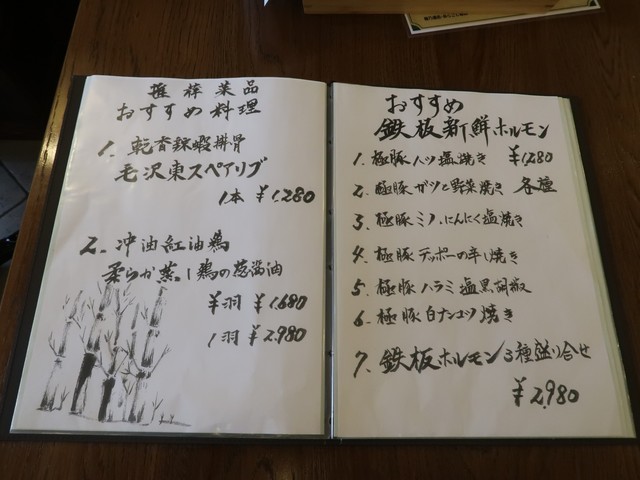 推荐菜品
おすすめ料理
1. 乾香鍱蝦排骨
毛沢東スペアリブ
1本 ¥1,280
2. 冲油紅油鶏
柔らか蒸し鶏の葱醤油
半羽 ¥1,680
1羽 ¥2,980
おすすめ
鉄板新鮮ホルモン
1. 極豚ハツ塩焼き ¥1,280
2. 極豚ガツと野菜焼き 各種
3. 極豚ミノ、にんにく塩焼き
4. 極豚テッポーの辛し焼き
5. 極豚ハラミ塩黒胡椒
6. 極豚白ナンコツ焼き
7. 鉄板ホルモン3種盛り合せ
¥2,980